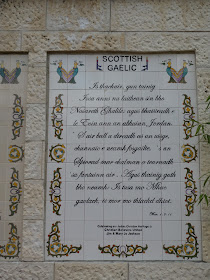 SCOTTISH
GAELIC
Is thachair, gun tainig
Iosa anns na laithean sin bho
Nasareth Ghalile: agus bhaisteadh
e le Eoin ann an abhuinn Jordan.
S air ball a direadh as an uisge,
chunnaic e neamh fosgailte, 's an
Spiorad mar chalman a tearnadh
us fantuinn air. Agus thainig guth
bho neamh: Is tusa mo Mhac
gradach, is mor mo thlachd
Mar. 1, 9-11